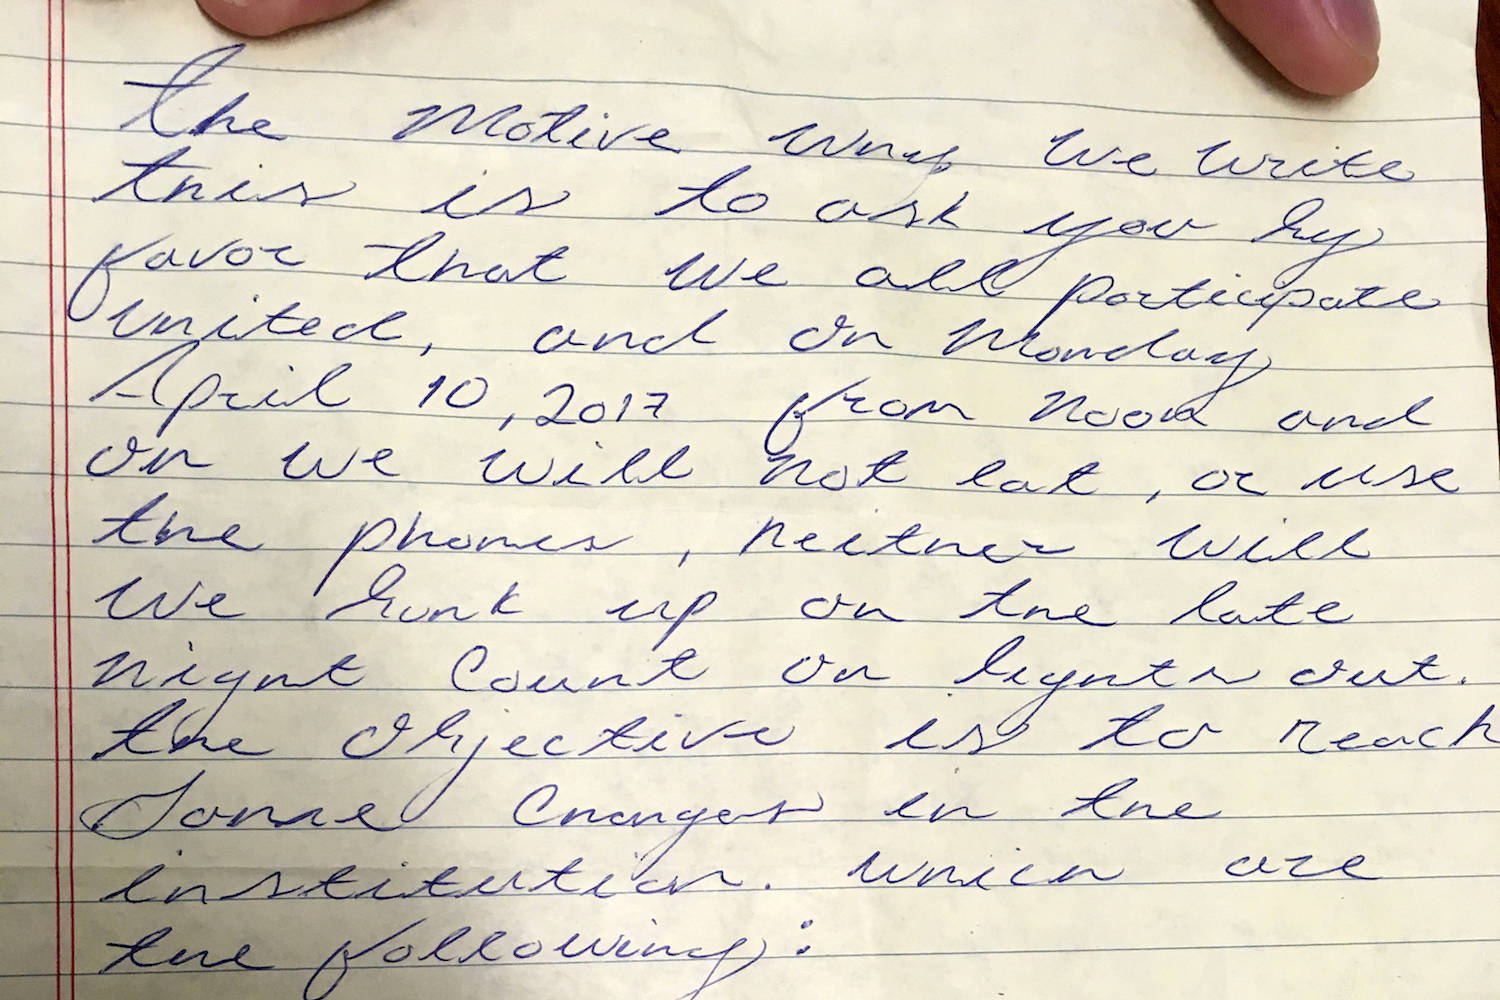 The Motive why we write
this is to ask you by
favor that we all participate
united, and on Monday
April 10, 2017 from noon and
on we will not eat, or use
the phones, neither will
we bunk up on the late
night count on lights out.
the objective is to reach
Some changes in the
institution. which are
the following: